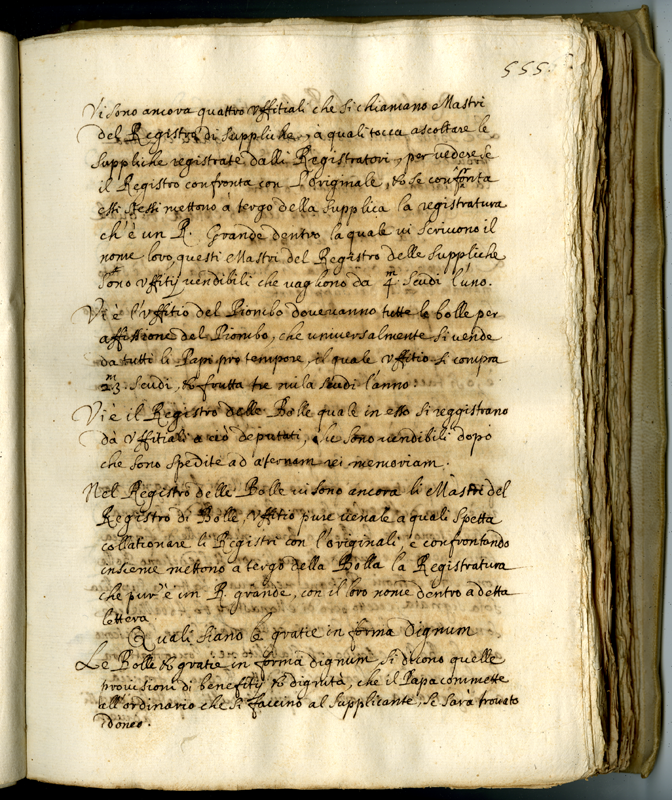 555.
Vi sono ancora quattro Vffitiali che si chiamano Mastri
del Registro di suppliche, à quali tocca ascoltare le
suppliche registrate dalli Registratori, per vedere se
il Registro confronta con l'originale, et se confronta
essi stessi mettono a tergo della supplica la registratura
ch'è un R. Grande dentro la quale vi scrivono il
nome loro, questi Mastri del Registro delle suppliche
sono Vffitij vendibili che vagliono da 4.m scudi l'uno.
Vi è l'Vffitio del Piombo dove vanno tutte le bolle per
affissione del Piombo, che universalmente si vende
da tutti li Papi pro tempore, il quale Vffitio si compra
23.m scudi, et frutta tre mila scudi l'anno:
Vi è il Registro delle Bolle quale in esso si reggistrano
da Vffitiali a ciò deputati, sono vendibili dopo
che sono spedite ad aternam rei memoriam.
Nel Registro delle Bolle vi sono ancora li Mastri del
Registro di Bolle, Vffitio pure venale a quali spetta
collationare li Registri con l'originali è confrontando
insieme mettono a tergo della Bolla la Registratura
che pur' è un R. grande, con il loro nome dentro a detta
lettera
Quali siano le gratie in forma Dignum
Le Bolle et gratie in forma dignum, si dicono quelle
provisioni di benefitij et dignità, che il Papa commette
all'ordinario che si faccino al supplicante, si sarà trovato
idoneo.